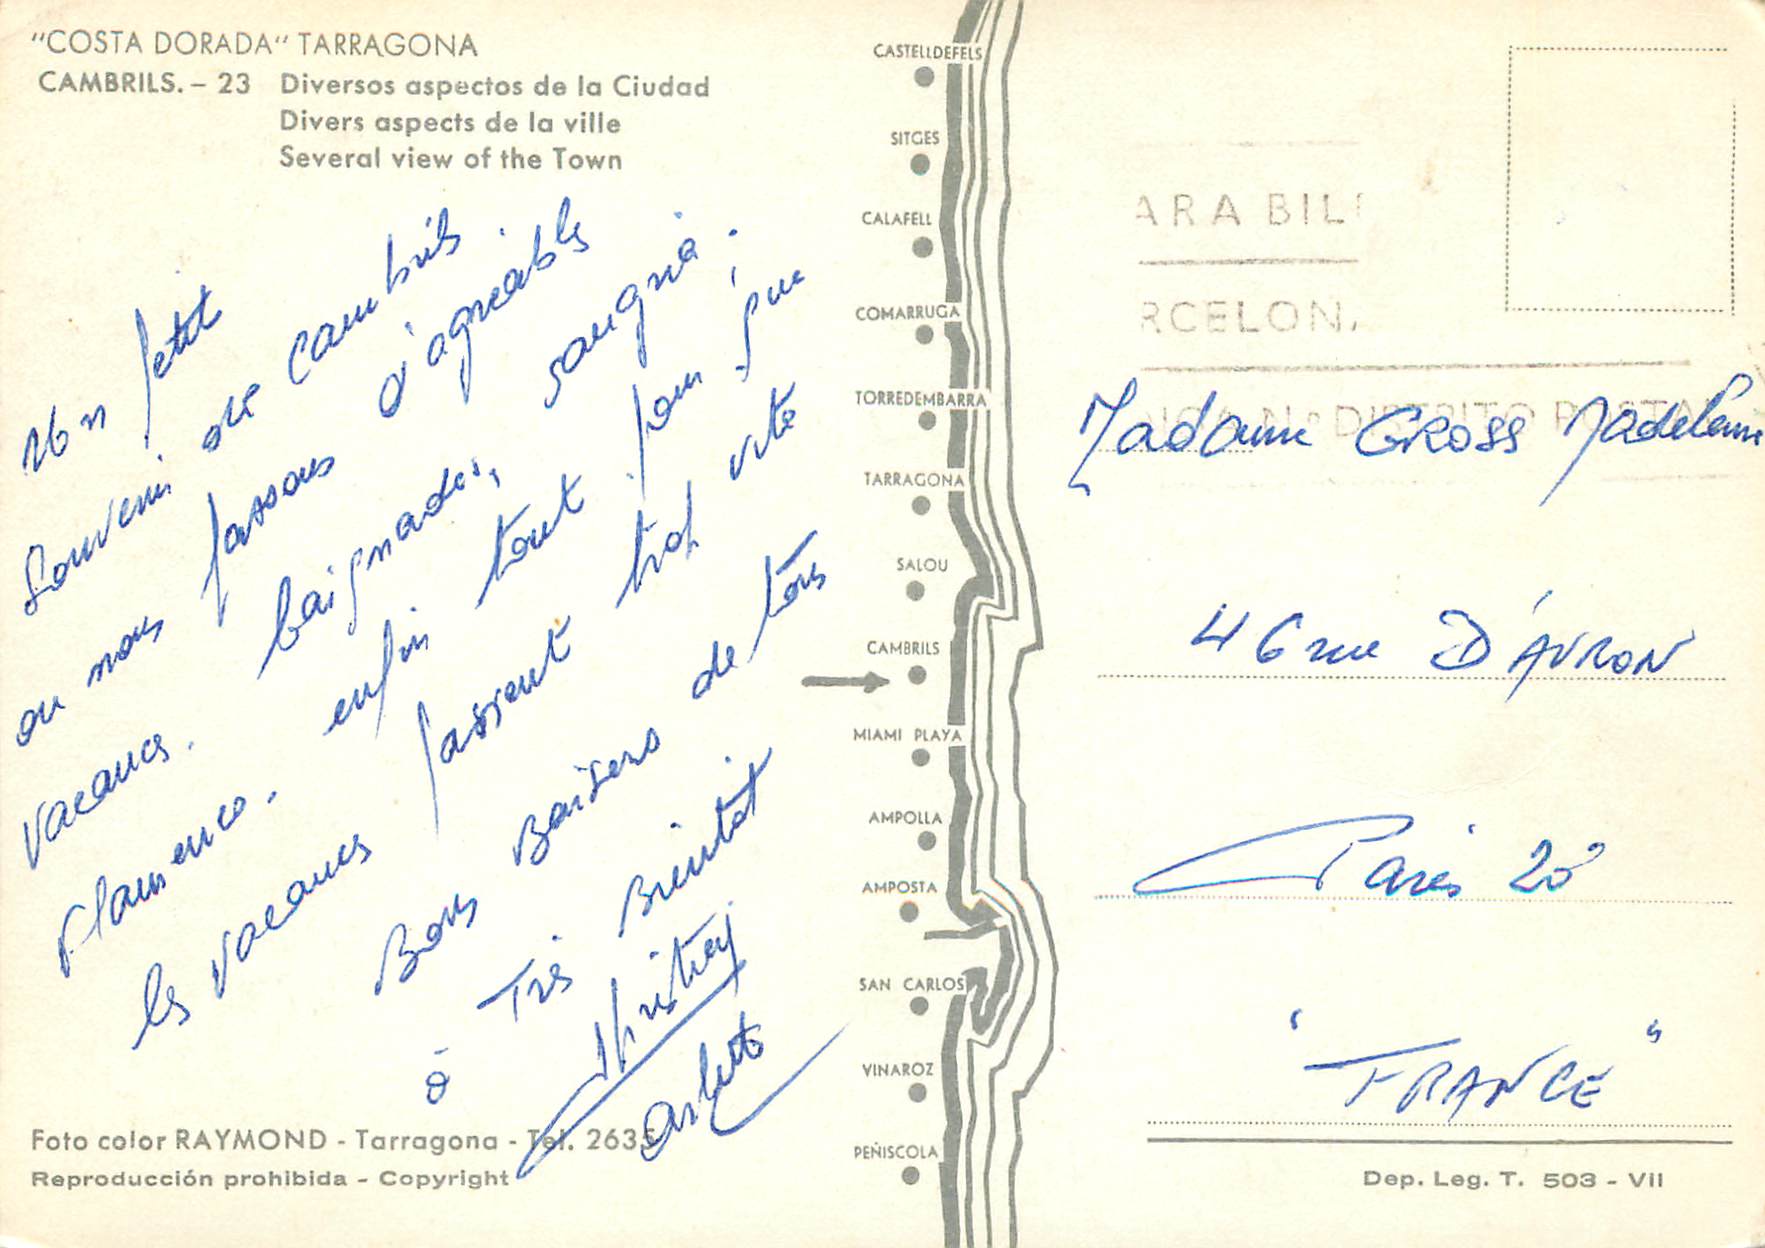 "COSTA DORADA" TARRAGONA
CAMBRILS. – 23 Diversos aspectos de la Ciudad
Divers aspects de la ville
Several view of the Town
Un petit
Souvenir de Cambrils
ou nous passons d'agréables
vacances. baignades, sangria.
Flamenco. enfin tout pour que
les vacances passent trop vite
Bons Baisers de tous
à Très Bientôt
Arlette
Foto color RAYMOND - Tarragona - Tel. 2635
Reproducción prohibida - Copyright
CASTELLDEFELS
SITGES
CALAFELL
COMARRUGA
TORREDEMBARRA
TARRAGONA
SALOU
CAMBRILS
MIAMI PLAYA
AMPOLLA
AMPOSTA
SAN CARLOS
VINAROZ
PEÑISCOLA
ARA BIL
RCELONA
DISTRITO POSTAL
Madame GROSS Madeleine
46 rue D'AVRON
Paris 20°
"FRANCE"
Dep. Leg. T. 503 - VII